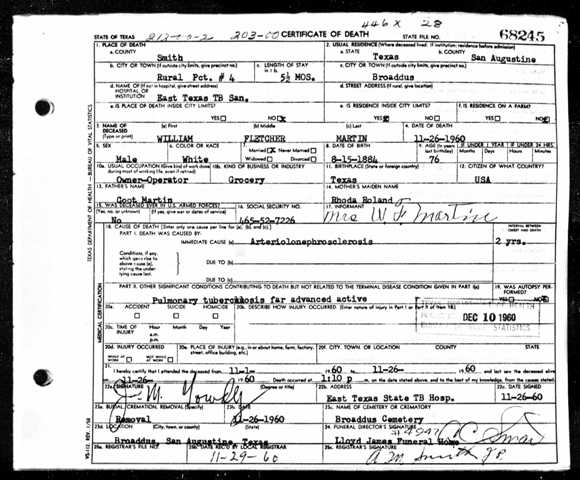 446 x 28
STATE OF TEXAS 212-00-2 203-00 CERTIFICATE OF DEATH STATE FILE NO. 68245
1. PLACE OF DEATH 2. USUAL RESIDENCE (Where deceased lived. If institution: residence before admission)
a. COUNTY Smith a. STATE Texas b. COUNTY San Augustine
b. CITY OR TOWN (If outside city limits, give precinct no.) c. LENGTH OF STAY in 1 b. c. CITY OR TOWN (If outside city limits, give precinct no.)
Rural Pct. # 4 5½ MOS. Broaddus
d. NAME OF (If not in hospital, give street address) HOSPITAL OR INSTITUTION d. STREET ADDRESS (If rural, give location)
East Texas TB San.
e. IS PLACE OF DEATH INSIDE CITY LIMITS? e. IS RESIDENCE INSIDE CITY LIMITS? f. IS RESIDENCE ON A FARM?
YES NO YES NO YES NO
3. NAME OF DECEASED (Type or print) (a) First (b) Middle (c) Last 4. DATE OF DEATH
WILLIAM FLETCHER MARTIN 11-26-1960
5. SEX 6. COLOR OR RACE 7. Married Never Married Widowed Divorced 8. DATE OF BIRTH 9. AGE (In years last birthday) IF UNDER 1 YEAR IF UNDER 24 HRS.
Male White 8-15-1884 76
10a. USUAL OCCUPATION (Give kind of work done during most of working life, even if retired) 10b. KIND OF BUSINESS OR INDUSTRY 11. BIRTHPLACE (State or foreign country) 12. CITIZEN OF WHAT COUNTRY?
Owner-Operator Grocery Texas USA
13. FATHER'S NAME 14. MOTHER'S MAIDEN NAME
Coot Martin Rhoda Roland
15. WAS DECEASED EVER IN U.S. ARMED FORCES? 16. SOCIAL SECURITY NO. 17. INFORMANT
(Yes, no, or unknown) (If yes, give war or dates of service)
No 465-52-7226 Mrs W F Martin
18. CAUSE OF DEATH (Enter only one cause per line for (a), (b), and (c).) INTERVAL BETWEEN ONSET AND DEATH
PART I. DEATH WAS CAUSED BY:
IMMEDIATE CAUSE (a) Arteriolonephrosclerosis 2 yrs.
Conditions, if any, which gave rise to above cause (a), stating the underlying cause last.
DUE TO (b)
DUE TO (c)
PART II. OTHER SIGNIFICANT CONDITIONS CONTRIBUTING TO DEATH BUT NOT RELATED TO THE TERMINAL DISEASE CONDITION GIVEN IN PART I(a) 19. WAS AUTOPSY PERFORMED?
Pulmonary tuberculosis far advanced active YES NO
20a. ACCIDENT SUICIDE HOMICIDE 20b. DESCRIBE HOW INJURY OCCURRED (Enter nature of injury in Part I or Part II of item 18).
DEC 10 1960
STATISTICS
20c. TIME OF INJURY Hour Month Day Year
a.m.
p.m.
20d. INJURY OCCURRED WHILE AT WORK NOT WHILE AT WORK 20e. PLACE OF INJURY (e.g., in or about home, farm, factory, street, office building, etc.) 20f. CITY, TOWN, OR LOCATION COUNTY STATE
21. I hereby certify that I attended the deceased from 11-1- 1960 to 11-26- 1960 and last saw the deceased alive
11-26- 1960 Death occurred at 1:10 p m. on the date stated above, and to the best of my knowledge, from the causes stated.
22a. SIGNATURE (Degree or title) 22b. ADDRESS 22c. DATE SIGNED
East Texas State TB Hosp. 11-26-60
23a. BURIAL, CREMATION, REMOVAL (Specify) 23b. DATE 23c. NAME OF CEMETERY OR CREMATORY
Removal 11-26-1960 Broaddus Cemetery
23d. LOCATION (City, town, or county) (State) 24. FUNERAL DIRECTOR'S SIGNATURE
Broaddus, San Augustine, Texas Lloyd James Funeral Home
25a. REGISTRAR'S FILE NO. 25b. DATE REC'D BY LOCAL REGISTRAR 25c. REGISTRAR'S SIGNATURE
11-29-60
TEXAS DEPARTMENT OF HEALTH — BUREAU OF VITAL STATISTICS
MEDICAL CERTIFICATION